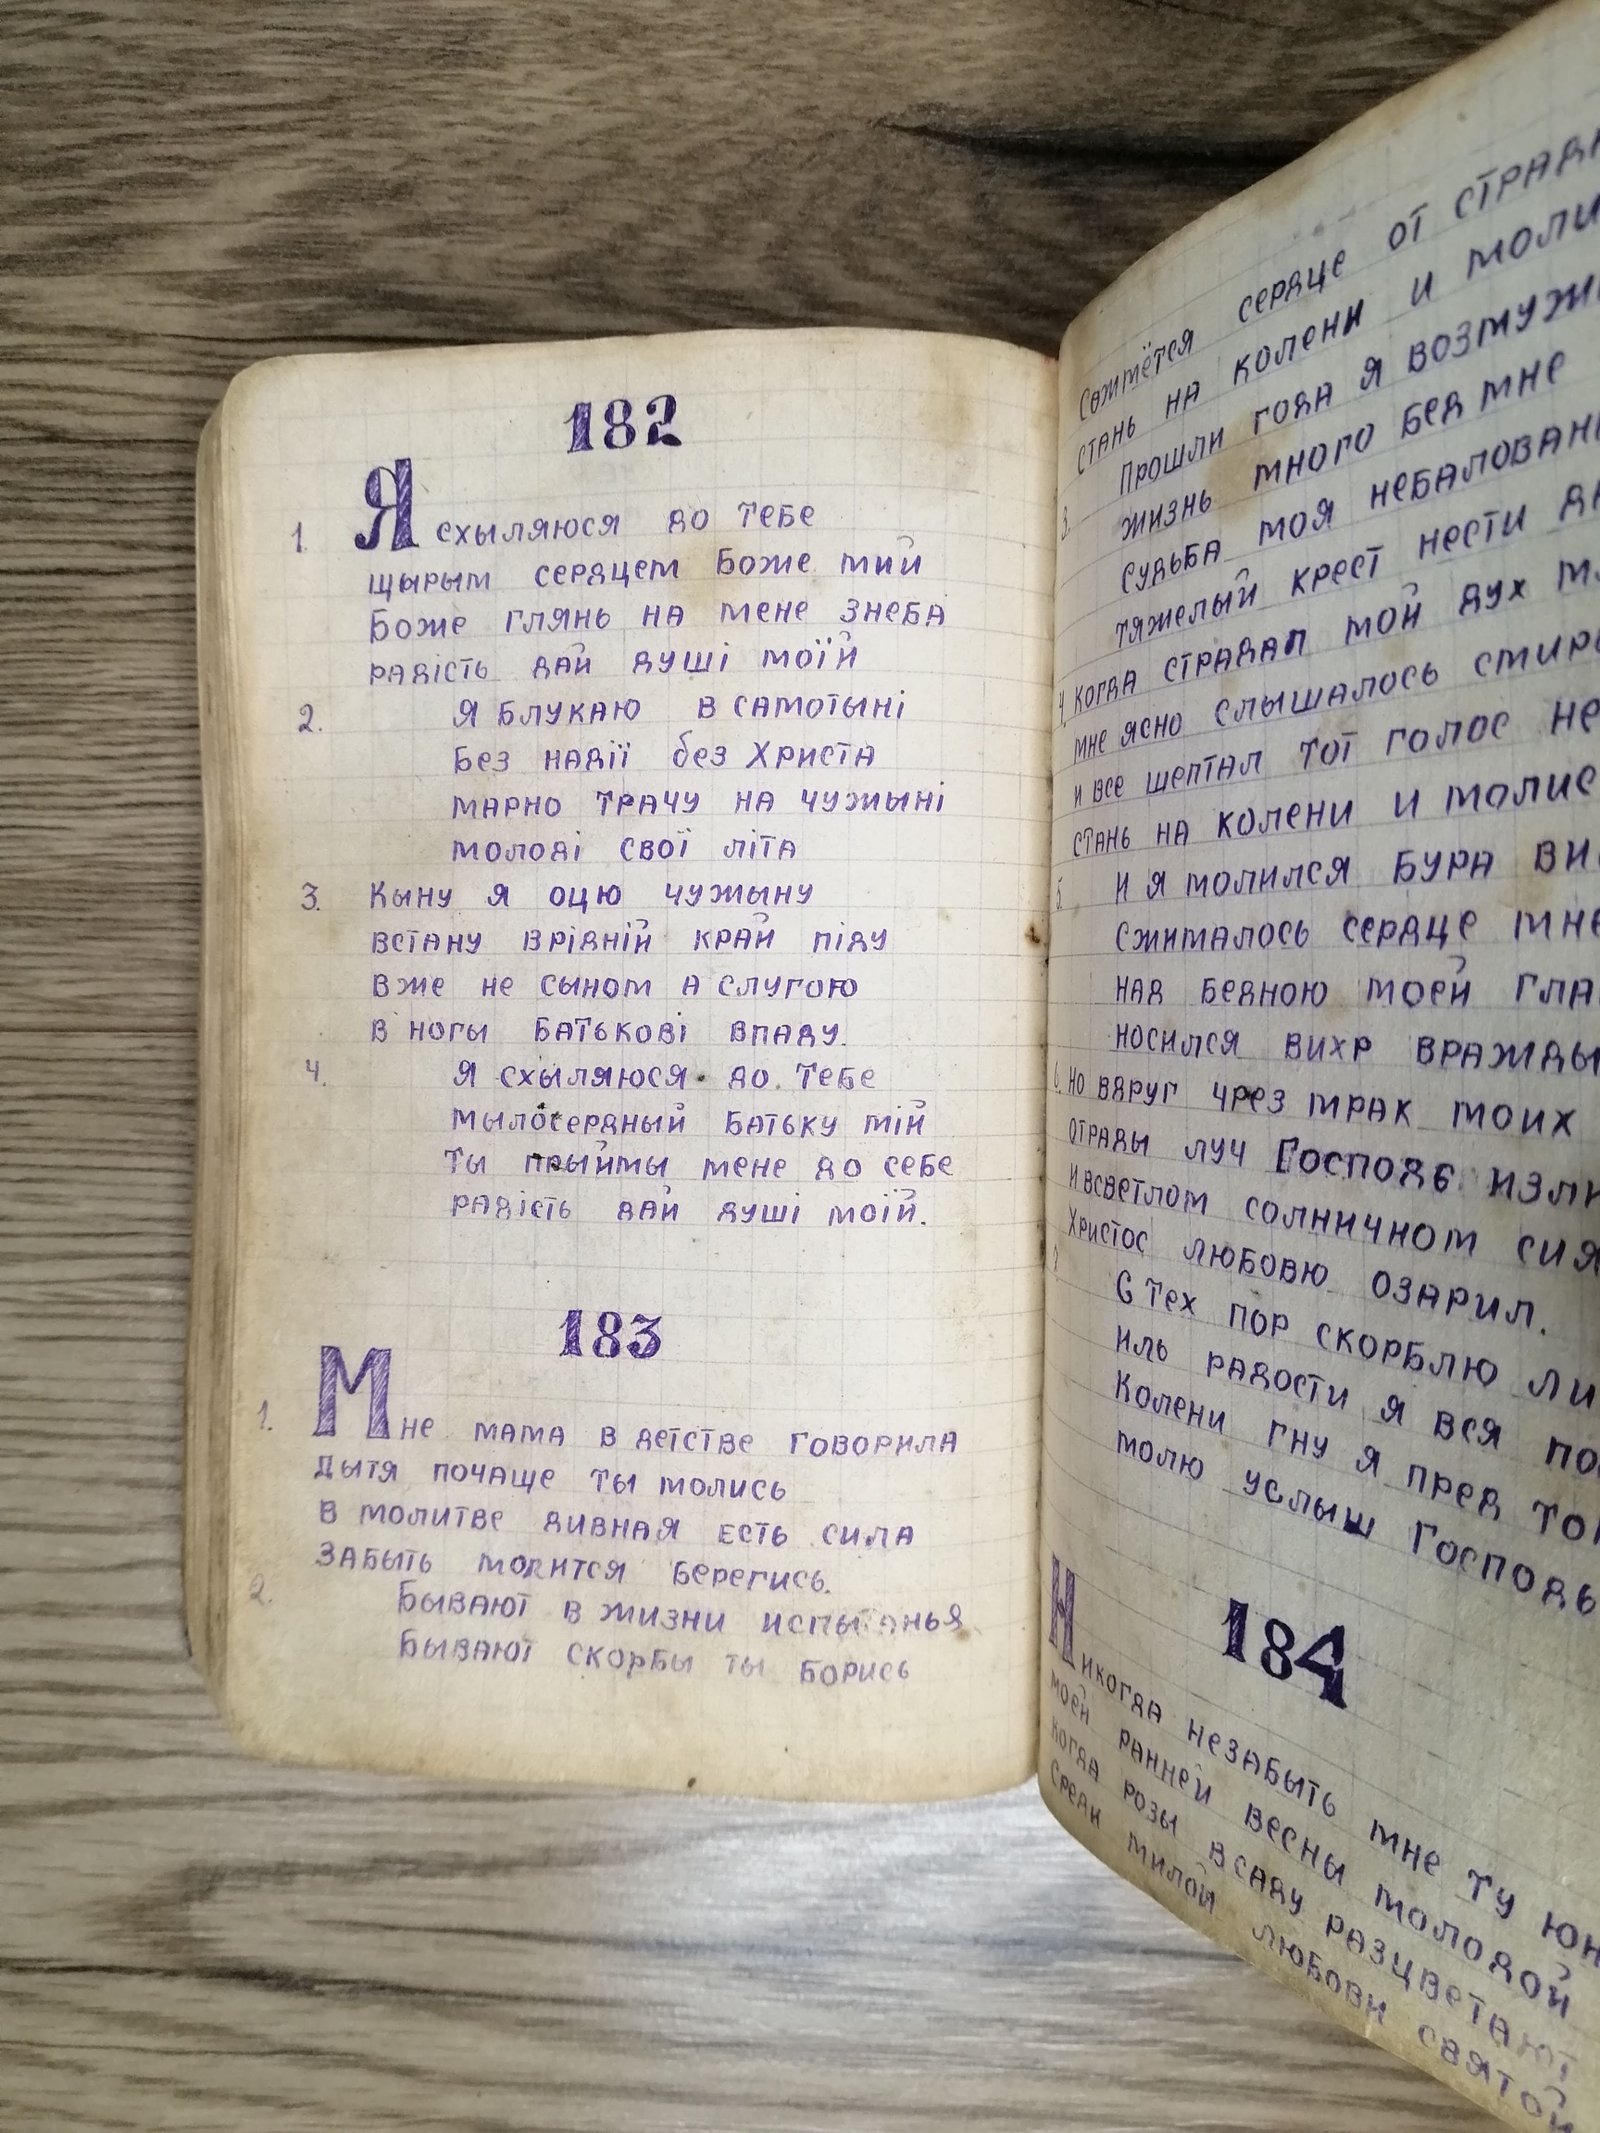 182
1. Я схыляюся до тебе
щырым сердцем Боже мий
Боже глянь на мене знеба
радість дай душі моїй
2. Я блукаю в самотыні
Без надії без Христа
марно трачу на чужыні
молоді свої літа
3. Кыну я оцю чужыну
встану врідній край піду
вже не сыном а слугою
в ногы батькові впаду.
4. Я схыляюся до тебе
мылосердный батьку мій
ты прыймы мене до себе
радість дай душі моїй.
183
1. Мне мама в детстве говорила
дытя почаще ты молись
в молитве дивная есть сила
забыть молится берегись.
2. Бывают в жизни испытанья
Бывают скорбы ты борись
Сожмётся сердце от
стань на колени и
3. Прошли года я
жизнь много бед мне
судьба моя
тяжелый крест нести
4. когда страдал мой дух
мне ясно слышалось
и все шептал тот голос
стань на колени и
5. И я молился бура
сжималось сердце
над бедною моей
носился вихр вражды
6. но вдруг чрез мрак моих
отрады луч Господь
и всветлом солничном
Христос любовю озарил.
7. С тех пор скорблю
иль радости я вся
Колени гну я пред
молю услыш Господь
184
Никогда незабыть мне ту
моей ранней весны молодой
когда розы всаду разцветают
среди милой любови святой